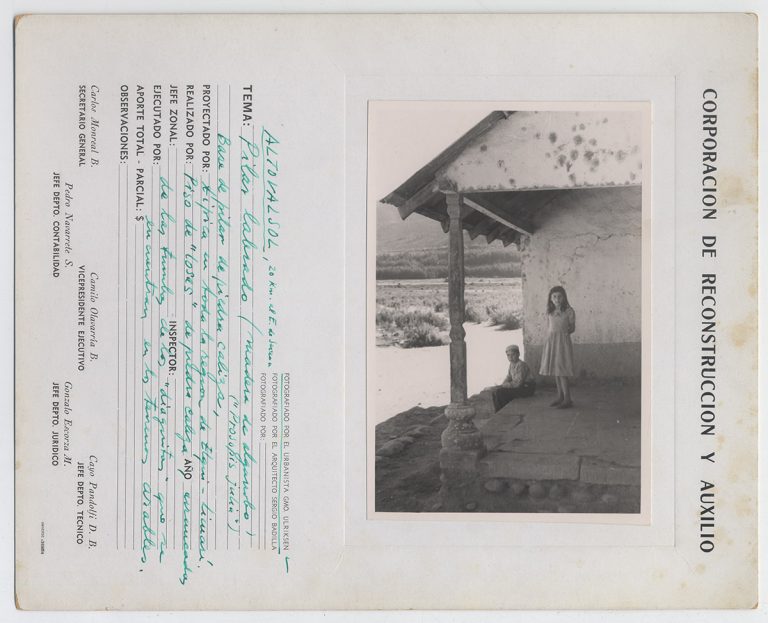 CORPORACION DE RECONSTRUCCION Y AUXILIO
FOTOGRAFIADO POR EL URBANISTA GMO. ULRIKSEN
FOTOGRAFIADO POR EL ARQUITECTO SERGIO BADILLA
FOTOGRAFIADO POR:
ALTOVALSOL, 20 Km. al E. de Serena
TEMA: Pilar labrado (madera de algarrobo)
("Prosopis juliu")
Base de pilar de piedra caliza,
PROYECTADO POR: típica en toda la region de Elqui - Limarí.
REALIZADO POR: Piso de "losas" de piedra caliza AÑO
JEFE ZONAL: INSPECTOR:
EJECUTADO POR: de las tumbas de los "diaguitas" que se
APORTE TOTAL - PARCIAL: $ encuentran en los terrenos arables.
OBSERVACIONES:
Carlos Monreal B.
SECRETARIO GENERAL
Pedro Navarrete S.
JEFE DEPTO. CONTABILIDAD
Camilo Olavarria B.
VICEPRESIDENTE EJECUTIVO
Gonzalo Escorza M.
JEFE DEPTO. JURIDICO
Cayo Pandolfi D. B.
JEFE DEPTO. TECNICO